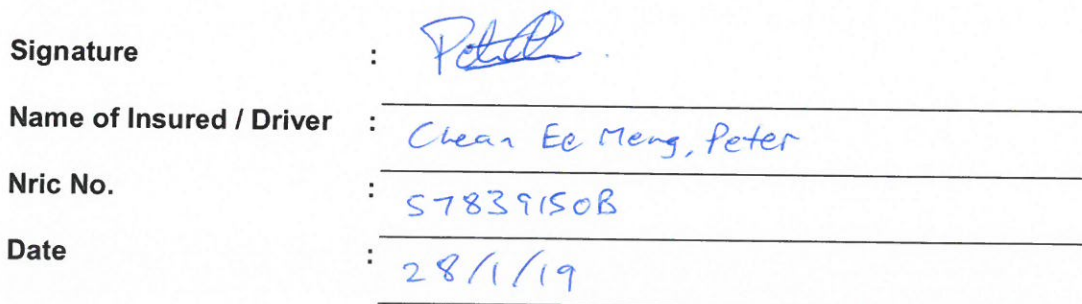 Signature :
Name of Insured / Driver : Chean Ee Meng, Peter
Nric No. : S7839150B
Date : 28/1/19